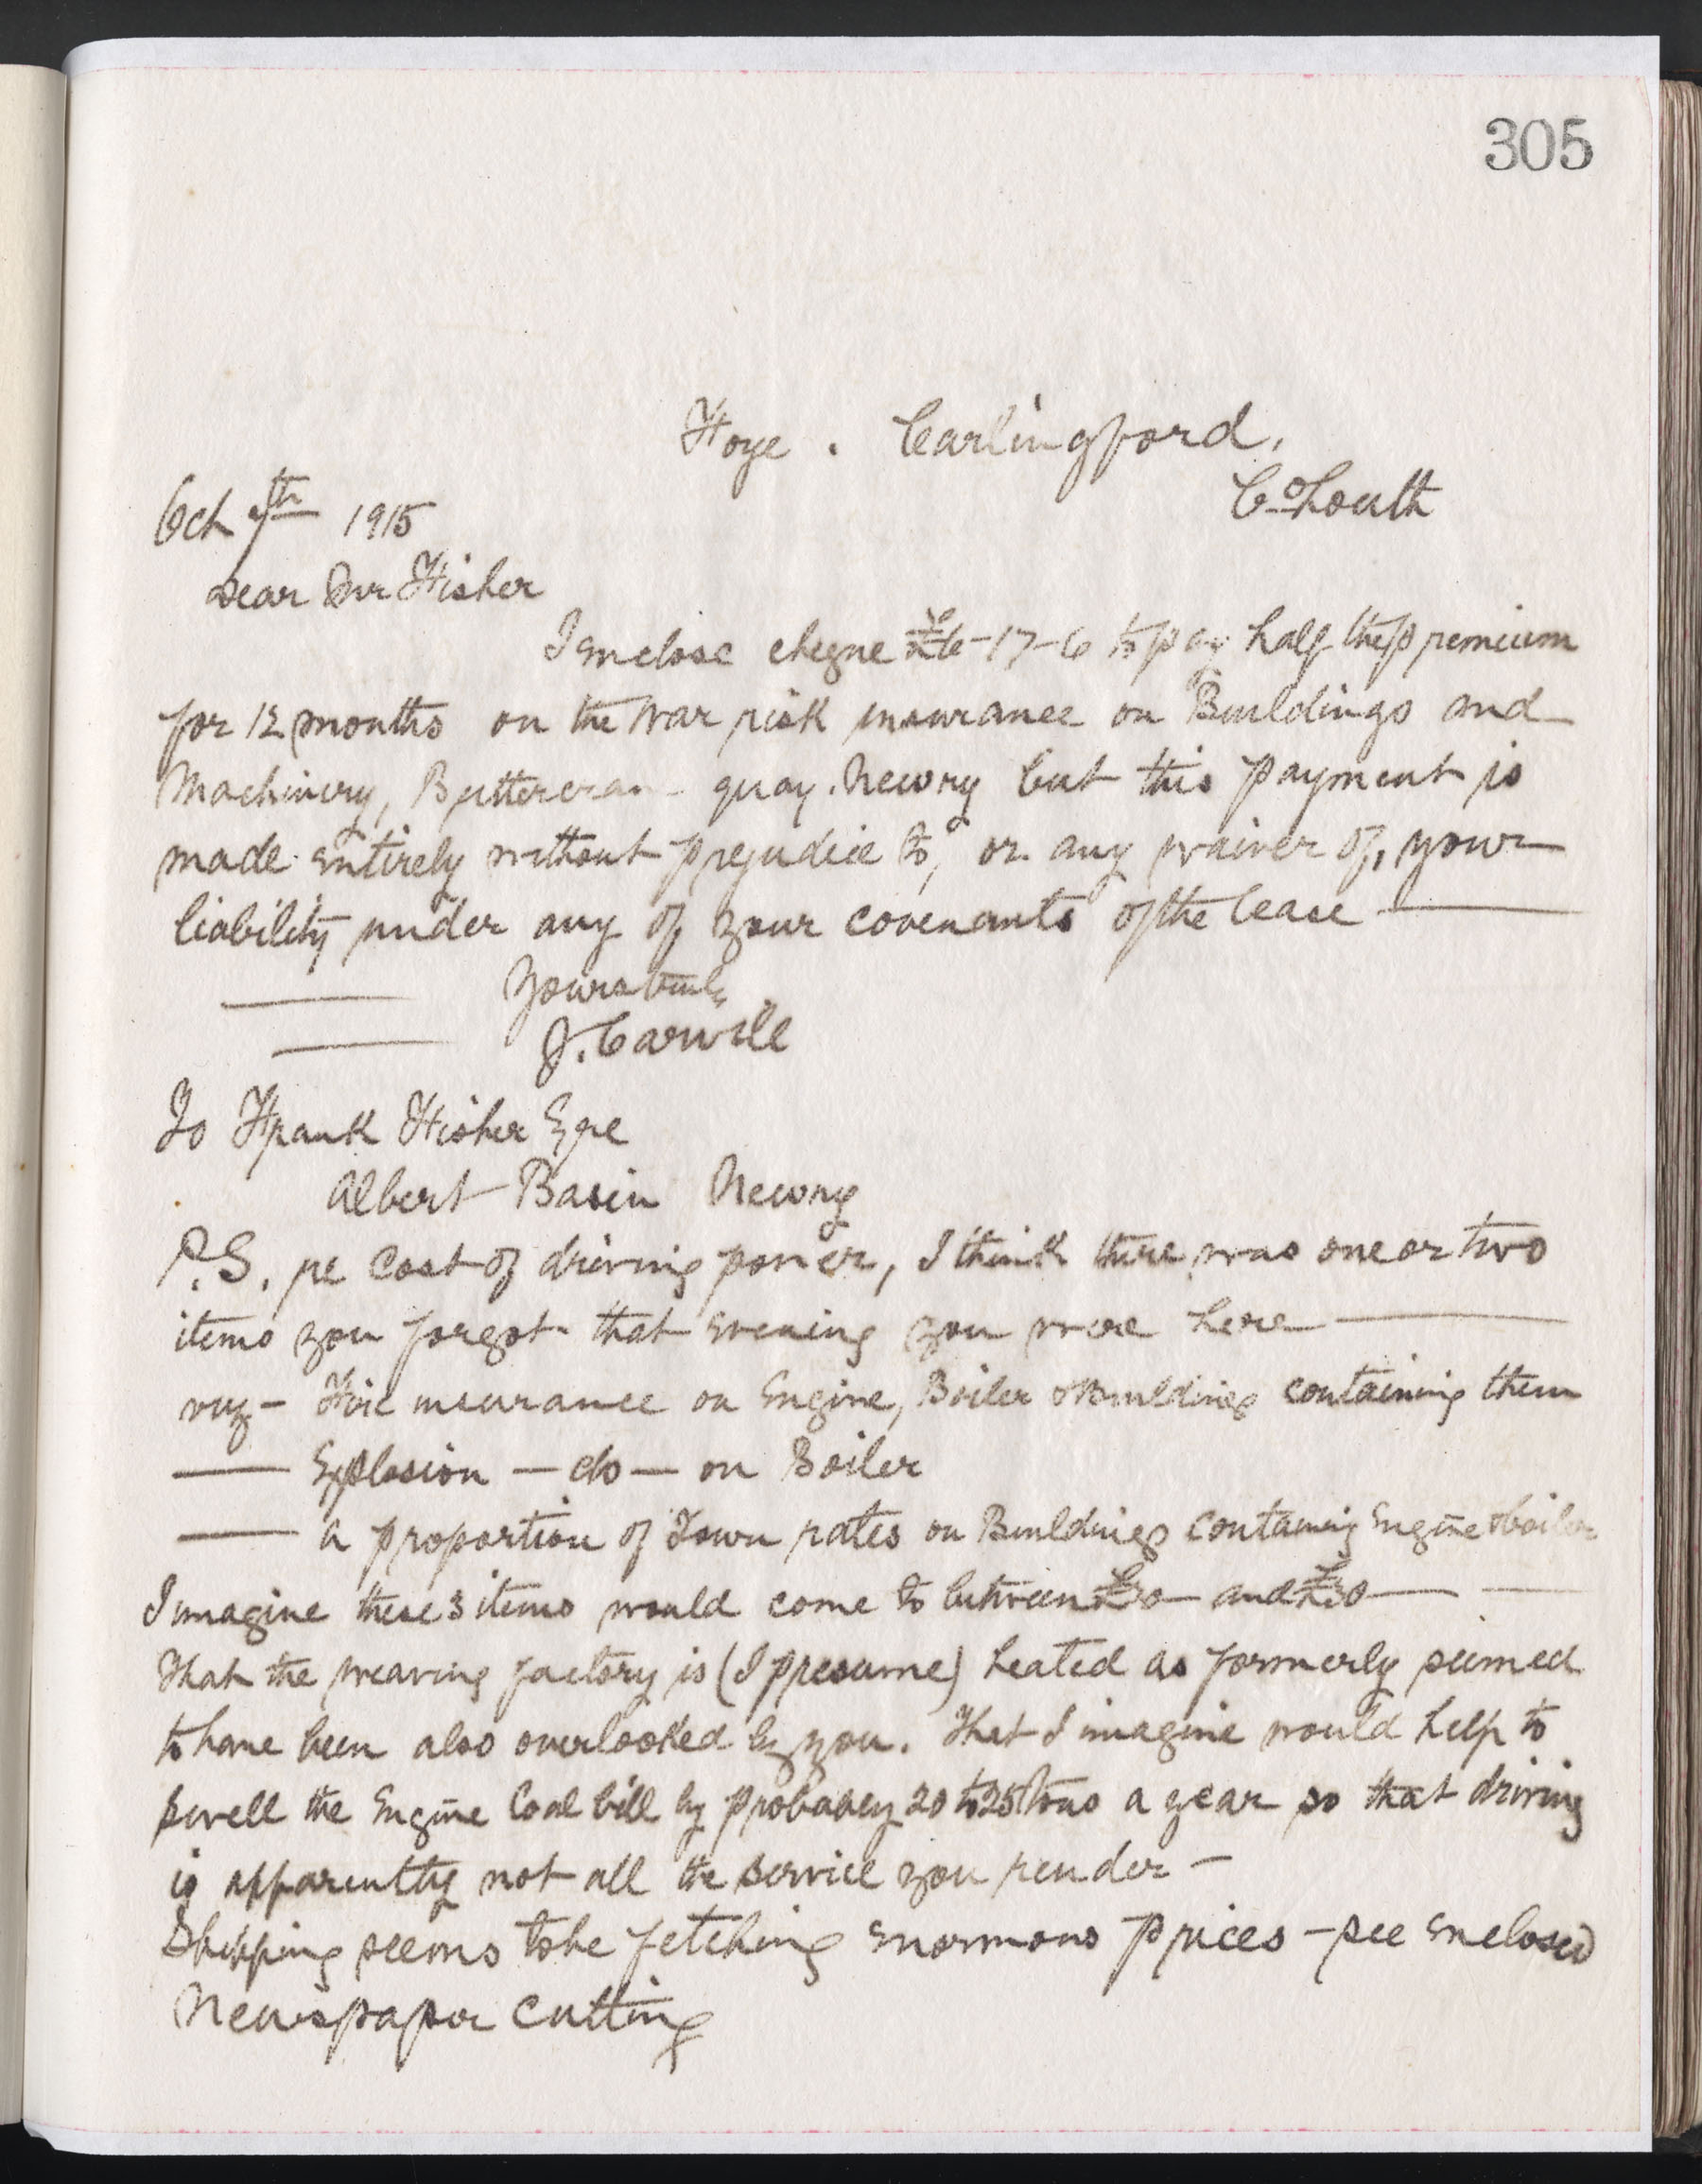 305
Foye . Carlingford.
Co Louth
Oct 7th 1915
Dear Mr Fisher
I enclose cheque £6-17-6 to pay half the premium
for 12 months on the War risk insurance on Buildings and
Machinery, Buttercrane quay. Newry but this payment is
made entirely without prejudice to, or any waiver of, your
liability under any of your covenants of the lease —
— Yours truly
— J. Carvill
To Frank Fisher Eqre
Albert Basin Newry
P.S. re Cost of driving power, I think there was one or two
items you forgot that evening you were here —
viz - Fire insurance on Engine, Boiler & Buildings containing them
— Explosion — do — on Boiler
— A proportion of Town rates on Buildings containing Engine & boiler
I imagine these 3 items would come to between and £30 —
That the weaving factory is (I presume) heated as formerly seemed
to have been also overlooked by you. That I imagine would help to
swell the Engine Coal bill by probably 20 to 25 tons a year so that driving
is apparently not all the service you render -
Shipping seems to be fetching enormous prices - see enclosed
Newspaper cutting